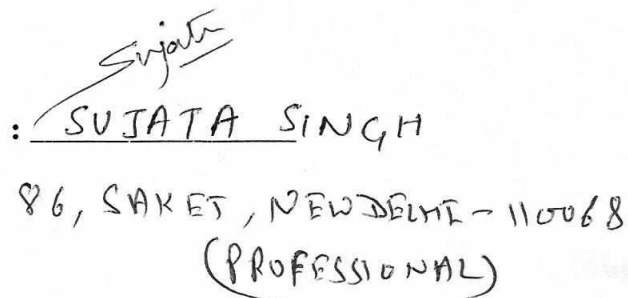 Sujata
: SUJATA SINGH
86, SAKET, NEW DELHI - 110068
(PROFESSIONAL)